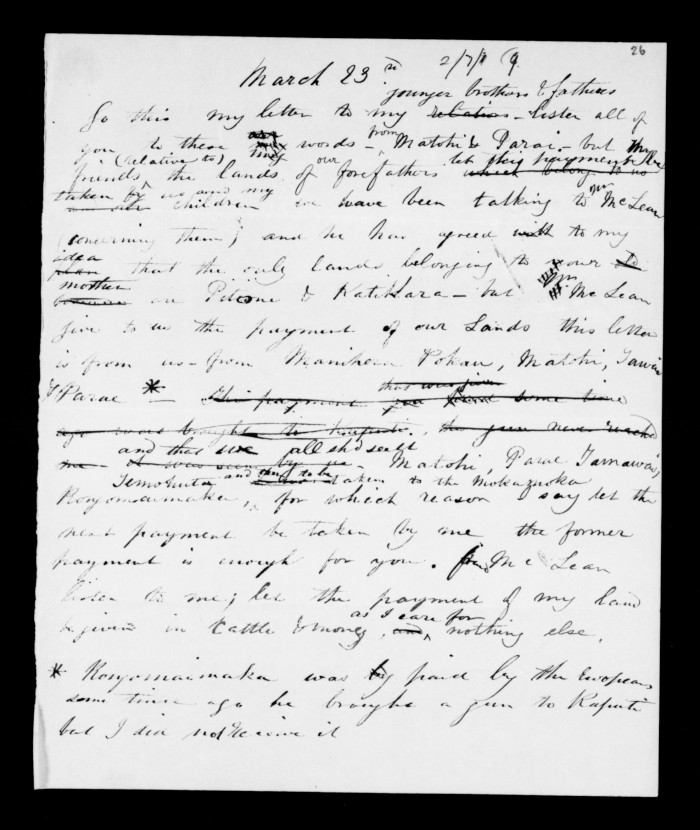 26
March 23rd
younger brothers & fathers
Go this my letter to my relations - listen all of
you to these my words - from Matohi & Parai - but my
friends (relative to) the lands of our forefathers which belong to us let the payment be
taken by us and my children we have been talking to Mr McLean
(concerning them) and he has agreed with to my
idea plan that the only lands belonging to our
mother are Pitone & Katihara - but Mr McLean
give to us the payment of our Lands this letter
is from us - from Manihera Tokau, Matohi,
& Parae * - This payment some time that was given
ago was brought to Kapiti, the gun never reached
me - It was seen by us and that we all shd see it - Matohi, Parae
and taken to the
for which reason I say let the
next payment be taken by me the former
payment is enough for you. Mc Lean
listen to me; let the payment of my land
be given in Cattle & money, and as I care for nothing else.
* was paid by the Europeans
some time ago he brought a gun to Kapiti
but I did not receive it